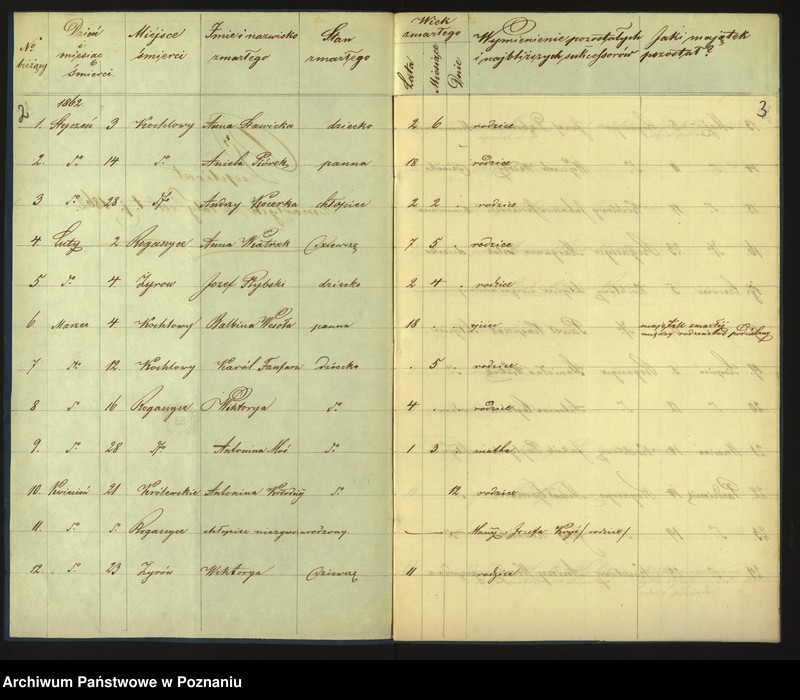 No bieżący Dzień miesiąc śmierci. Miejsce śmierci Imie i nazwisko zmarłego Stan zmarłego Wiek zmarłego Lata Miesiące Dnie Wymienienie pozostałych i najbliższych sukcessorów Jaki majątek pozostał?
2 3
1862.
1. Styczeń 3 Kochlowy Anna Sławicka dziecko 2 6 rodzice
2. do 14 do Aniela panna 18 rodzice
3 do 28 do Andrzy Kocerka chłópiec 2 2 . rodzice
4. Luty 2. Rogaszyce Anna Wiatrak Dziewczę 7 5 . rodzice
5. do 4 Zyrow Jozef Rybski dziecko 2 4 . rodzice
6. Marzec 4 Kochlowy Balbina Wesoła panna 18 . ojciec majątek zmarłej
między rodzeństwo
7 do 12. Kochlowy Karól Fanfara Dziecko . 5 . rodzice
8 do 16 Rogaszyce Wiktorya do 4 . rodzice
9. do 28 do Antonina Moś do 1 3 . matka
10. Kwiecień 21 Królewskie Antonina do 12 rodzice
11. do do Rogaszyce chłopiec rodzony. Józefa /rodzice/
12. do 23 Zyrów Wiktorya Dziewczę 11 rodzice
Archiwum Państwowe w Poznaniu